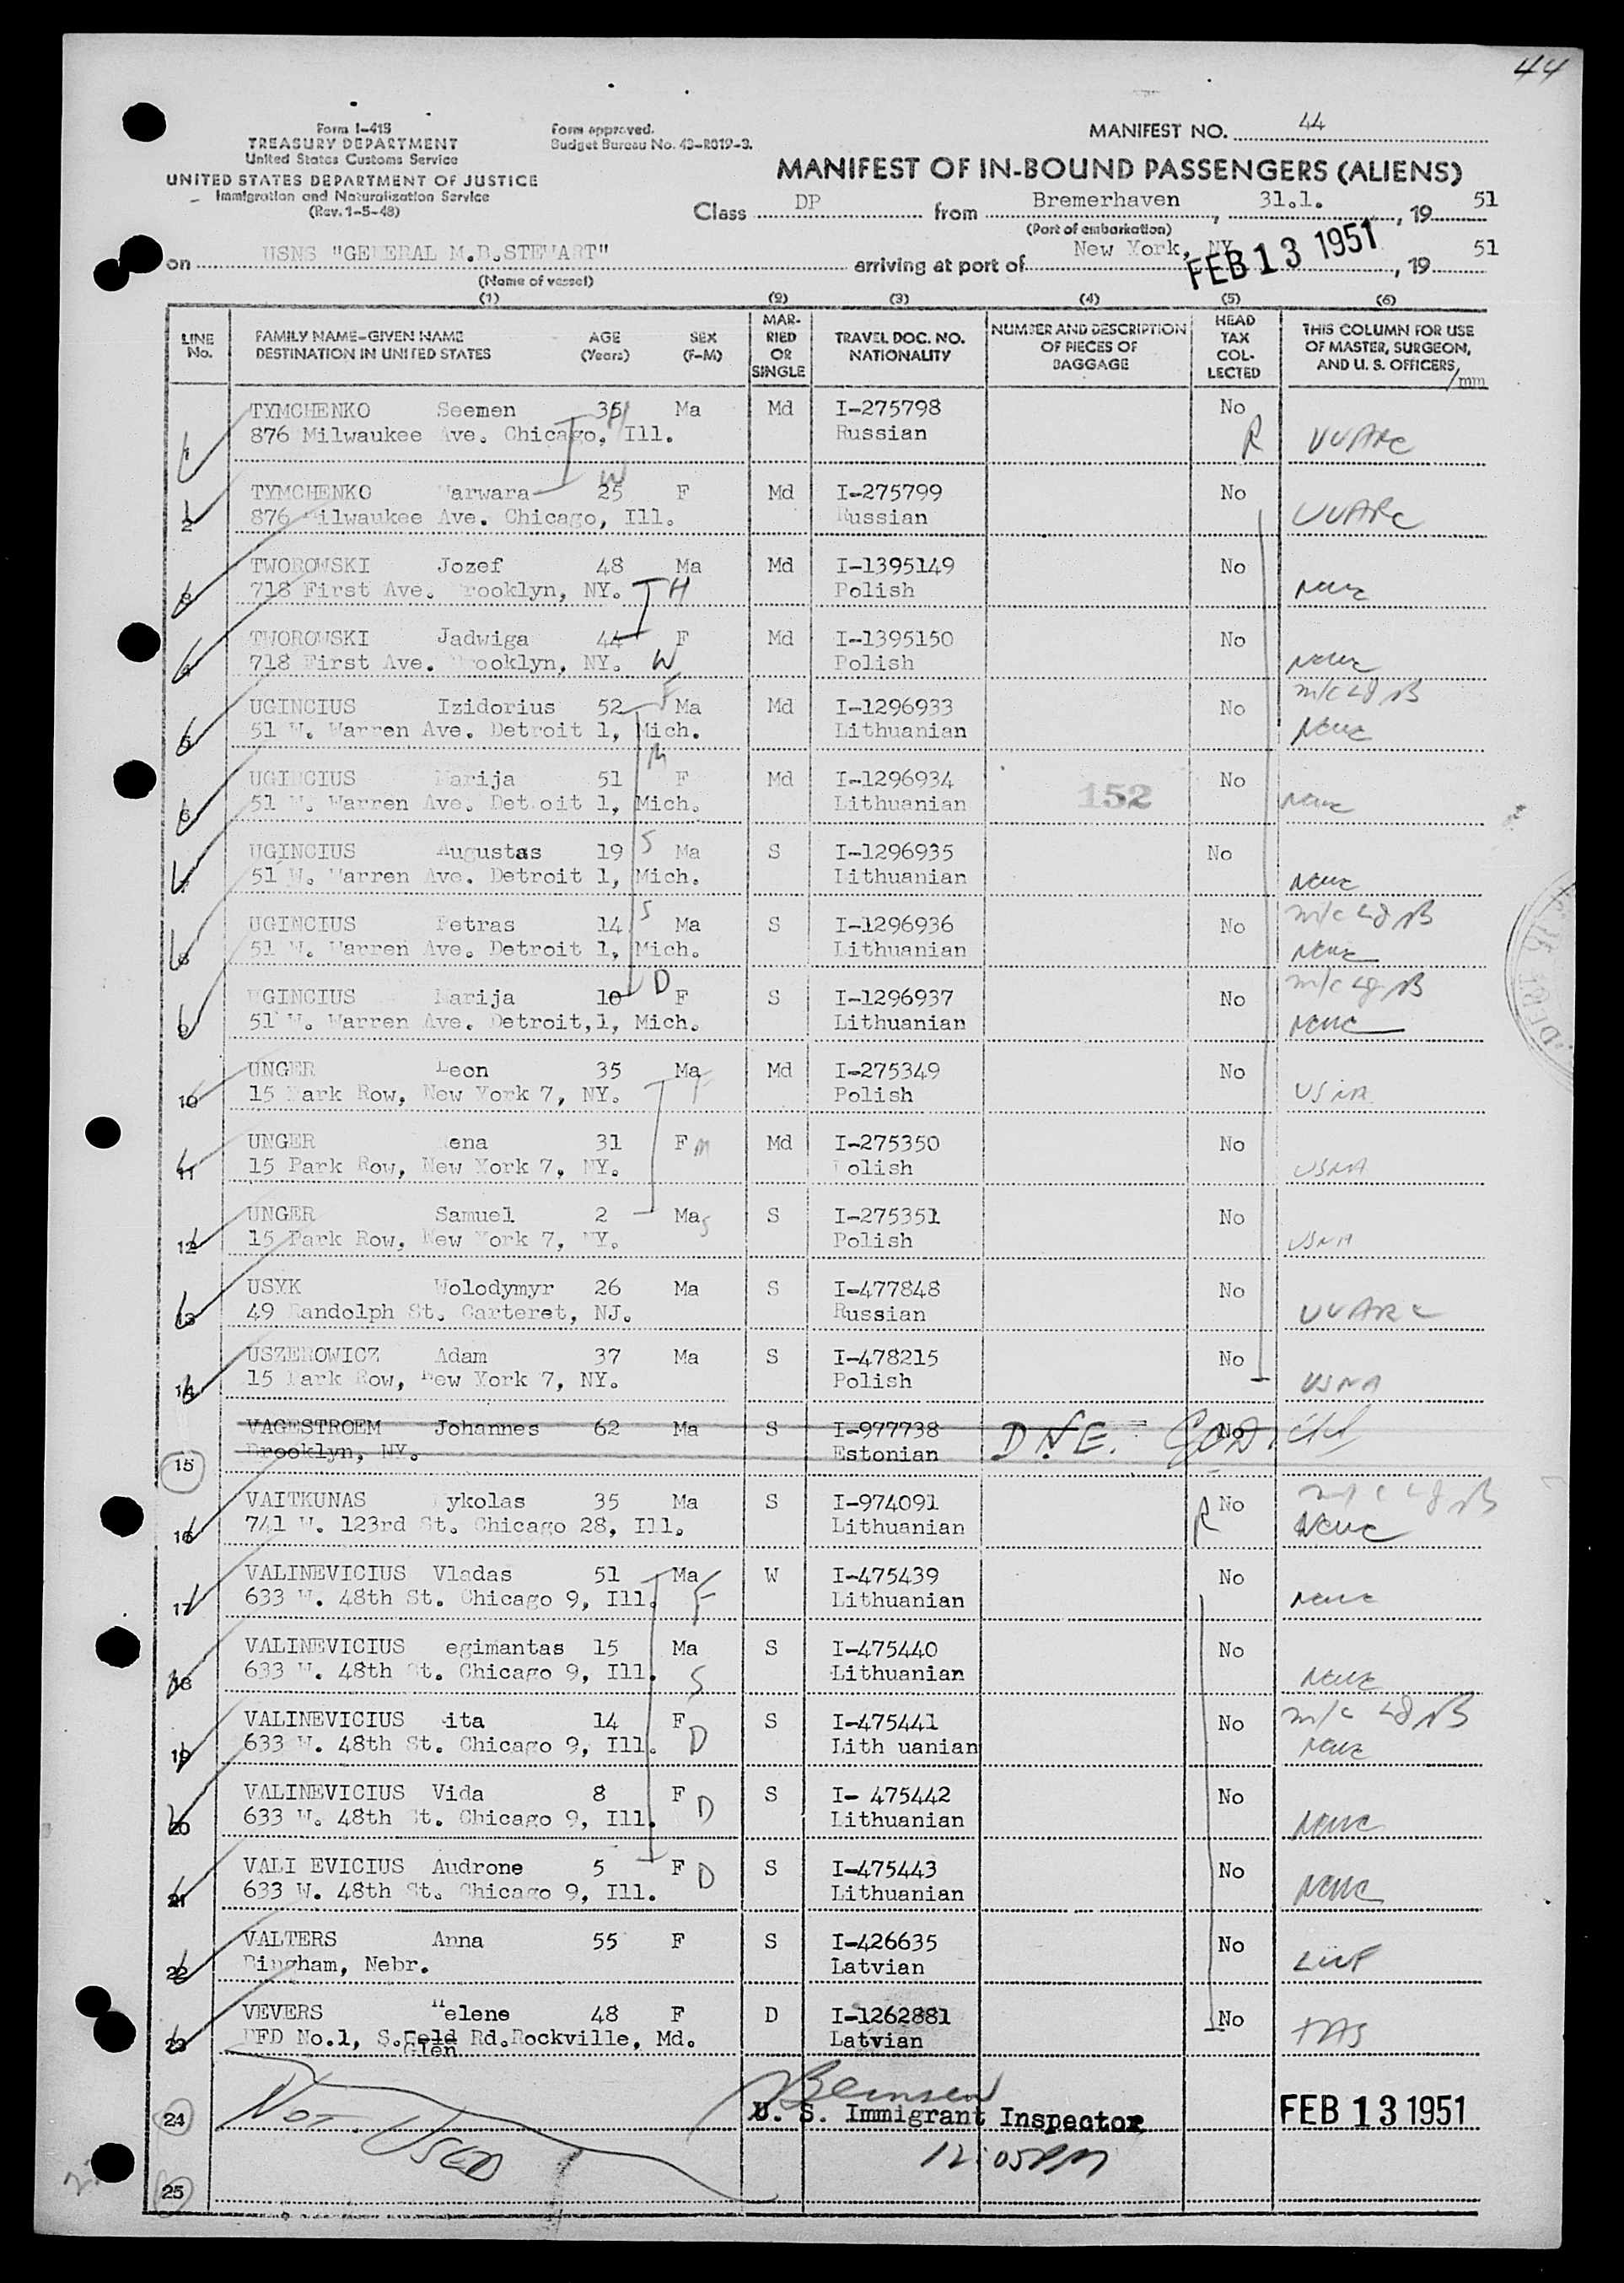 44
Form I-418
TREASURY DEPARTMENT
United States Customs Service
UNITED STATES DEPARTMENT OF JUSTICE
Immigration and Naturalization Service
(Rev. 1-5-48)
Form approved.
Budget Bureau No. 43-R019-3.
MANIFEST NO. 44
MANIFEST OF IN-BOUND PASSENGERS (ALIENS)
Class DP from Bremerhaven, 31.1., 1951
(Port of embarkation)
on USNS "GENERAL M.B.STEWART" arriving at port of New York, NY FEB 13 1951, 1951
(Name of vessel)
(1) (2) (3) (4) (5) (6)
LINE No. FAMILY NAME-GIVEN NAME DESTINATION IN UNITED STATES AGE (Years) SEX (F-M) MARRIED OR SINGLE TRAVEL DOC. NO. NATIONALITY NUMBER AND DESCRIPTION OF PIECES OF BAGGAGE HEAD TAX COLLECTED THIS COLUMN FOR USE OF MASTER, SURGEON, AND U. S. OFFICERS /mm
1 TYMCHENKO Seemen 35 H Ma Md I-275798 No
876 Milwaukee Ave. Chicago, Ill. Russian R UUARC
2 TYMCHENKO Warwara 25 W F Md I-275799 No
876 Milwaukee Ave. Chicago, Ill. Russian UUARC
3 TWOROWSKI Jozef 48 Ma Md I-1395149 No
718 First Ave. Brooklyn, NY. H Polish NCWC
4 TWOROWSKI Jadwiga 44 F Md I-1395150 No
718 First Ave. Brooklyn, NY. W Polish NCWC
5 UGINCIUS Izidorius 52 F Ma Md I-1296933 No
51 W. Warren Ave. Detroit 1, Mich. Lithuanian NCWC
6 UGINCIUS Marija 51 M F Md I-1296934 No
51 W. Warren Ave. Det oit 1, Mich. Lithuanian 152 NCWC
7 UGINCIUS Augustas 19 S Ma S I-1296935 No
51 W. Warren Ave. Detroit 1, Mich. Lithuanian NCWC
8 UGINCIUS Petras 14 S Ma S I-1296936 No
51 W. Warren Ave. Detroit 1, Mich. Lithuanian NCWC
9 UGINCIUS Marija 10 D F S I-1296937 No
51 W. Warren Ave. Detroit,1, Mich. Lithuanian NCWC
10 UNGER Leon 35 Ma F Md I-275349 No
15 Park Row, New York 7, NY. Polish USNA
11 UNGER Rena 31 F M Md I-275350 No
15 Park Row, New York 7, NY. Polish USNA
12 UNGER Samuel 2 Ma S S I-275351 No
15 Park Row, New York 7, NY. Polish USNA
13 USYK Wolodymyr 26 Ma S I-477848 No
49 Randolph St. Carteret, NJ. Russian UUARC
14 USZEROWICZ Adam 37 Ma S I-478215 No
15 Park Row, New York 7, NY. Polish USNA
15 VAGESTROEM Johannes 62 Ma S I-977738 No
Brooklyn, NY. Estonian D.N.E.
16 VAITKUNAS Mykolas 35 Ma S I-974091 No
741 W. 123rd St. Chicago 28, Ill. Lithuanian R NCWC
17 VALINEVICIUS Vladas 51 Ma W I-475439 No
633 W. 48th St. Chicago 9, Ill. F Lithuanian NCWC
18 VALINEVICIUS egimantas 15 Ma S I-475440 No
633 W. 48th St. Chicago 9, Ill. S Lithuanian NCWC
19 VALINEVICIUS ita 14 F S I-475441 No
633 W. 48th St. Chicago 9, Ill. D Lith uanian NCWC
20 VALINEVICIUS Vida 8 F D S I- 475442 No
633 W. 48th St. Chicago 9, Ill. Lithuanian NCWC
21 VALI EVICIUS Audrone 5 F D S I-475443 No
633 W. 48th St. Chicago 9, Ill. Lithuanian NCWC
22 VALTERS Anna 55 F S I-426635 No
Bingham, Nebr. Latvian LWF
23 VEVERS Helene 48 F D I-1262881 No
RFD No.1, S.Feld Rd.Rockville, Md. Latvian
Glen
24 U. S. Immigrant Inspector FEB 13 1951
NOT USED
12:05 PM
25